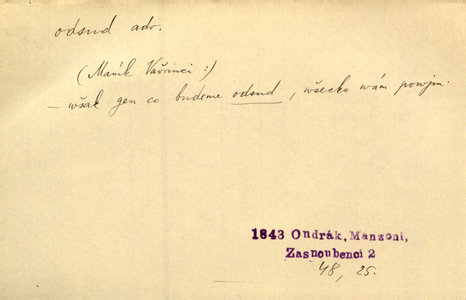 odsud adv.
(Maník Vavřinci:)
– wšak gen co budeme odsud, wšecko wám powjm.
1843 Ondrák, Manzoni,
Zasnoubenci 2
48, 25.